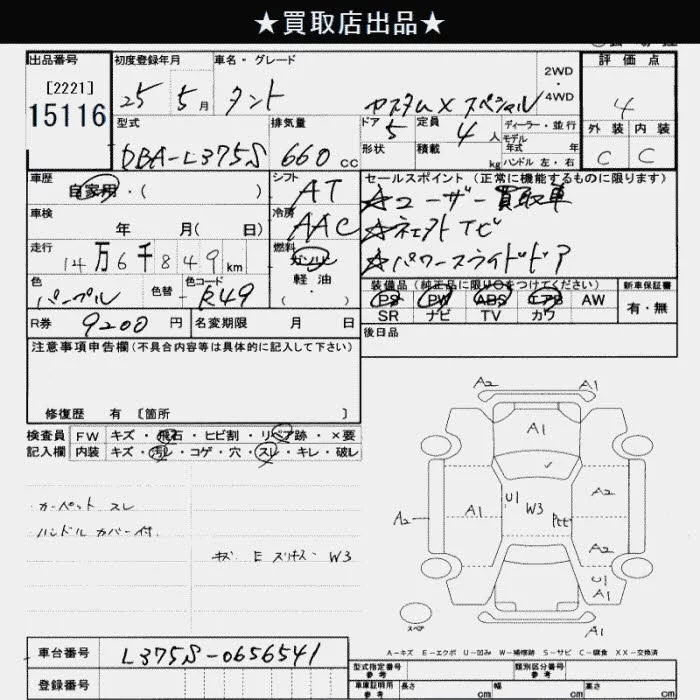 ★買取店出品★
出品番号
[2221]
15116
初度登録年月
25 5月
車名・グレード
タント
カスタムX スペシャル
2WD
・
4WD
評価点
4
外装 内装
C C
型式
DBA-L375S
排気量
660cc
ドア 5
形状
定員 4人
積載 kg
ディーラー・並行
モデル
年式 年
ハンドル 左・右
車歴
自家用・( )
シフト
AT
車検
年 月( 日)
冷房
AAC
走行
14万6千849km
燃料
ガソリン
軽油
・
( )
色
パープル
色替
カラーコード
R49
R券 9200円
名変期限 月 日
セールスポイント(正常に機能するものに限ります)
☆ユーザー買取車
☆パワースライドドア
装備品(純正品に限り○をつけてください)
新車保証書
PS PW ABS エアB AW
SR ナビ TV カワ
有・無
後日品
注意事項申告欄(不具合内容等は具体的に記入して下さい)
修復歴 有〔箇所 〕
検査員
記入欄
FW キズ・飛石・ヒビ割・リペア跡・×要
内装 キズ・汚レ・コゲ・穴・スレ・キレ・破レ
カーペット スレ
ハンドル カバー付
キズ E スリキズ W3
A2 A1
A1
U1 W3
A1 A2
A2
A2
U1
A1
A1
スペア
A-キズ E-エクボ U-凹み W-補修跡 S-サビ C-腐食 XX-交換済
車台番号 L375S-0656541
登録番号
型式指定番号
参考
類別区分番号
参考
車庫証明用
参考
長さ cm 幅 cm 高さ cm